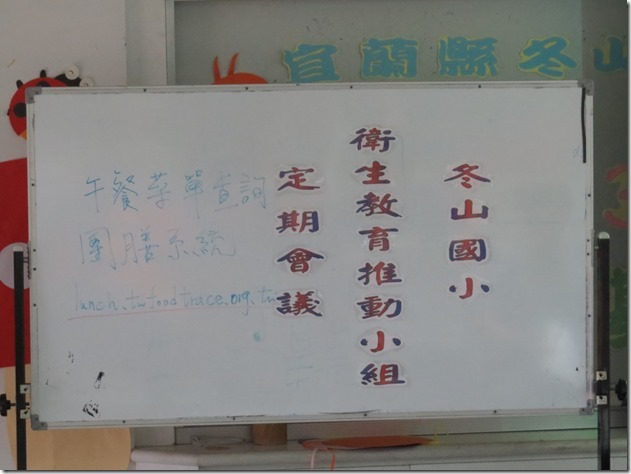 宜蘭縣冬山
冬山國小
衛生教育推動小組
定期會議
午餐菜單查詢
團膳系統
lunch.twfoodtrace.org.tw